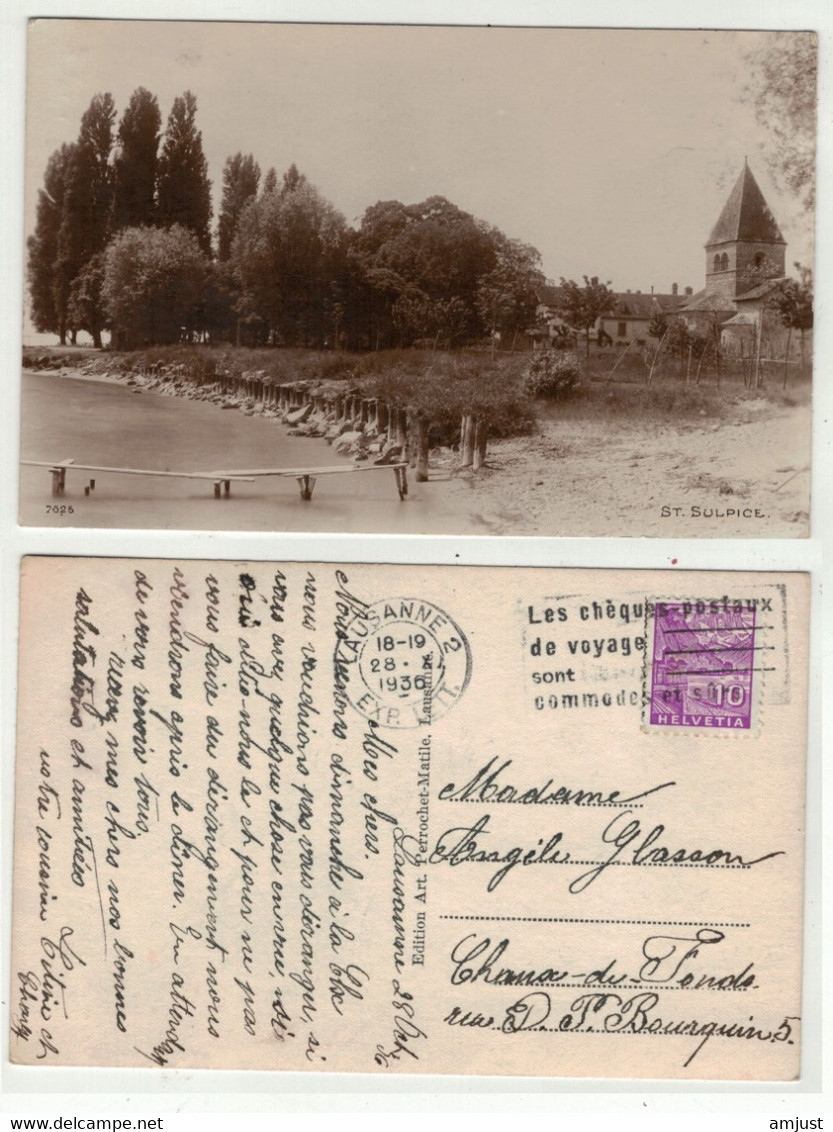 7025
ST. SULPICE.
LAUSANNE 2
18-19
28. X
1936
EXP. LETT.
Les chèques postaux
de voyage
sont
commodes et sûrs
10
HELVETIA
Edition Art. Perrochet-Matile, Lausanne.
Madame
Angèle Glasson
Chaux-de-Fonds
rue D. P. Bourquin 5.
Lausanne 28 Oct. 36
Mes chers.
Nous venons dimanche à la Chx
nous voudrions pas vous déranger, si
vous avez quelque chose en vue, si
oui dite-nous le et pour ne pas
vous faire du dérangement nous
viendrons après le dîner. En attendant
de vous revoir tous
recevez mes chers nos bonnes
salutations et amitiées
votre cousine et
www.delcampe.net
amjust